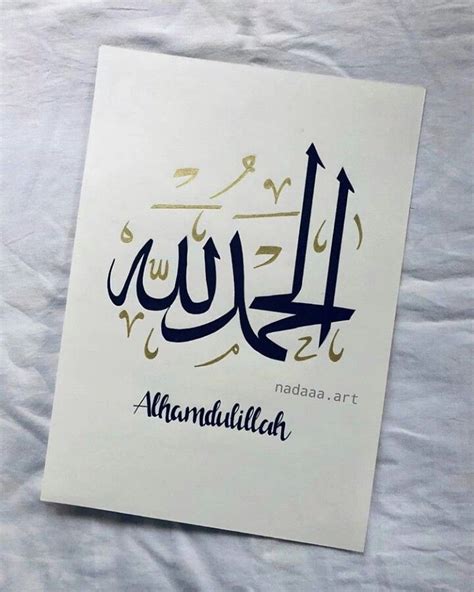 الحمد لله
nadaaa.art
Alhamdulillah